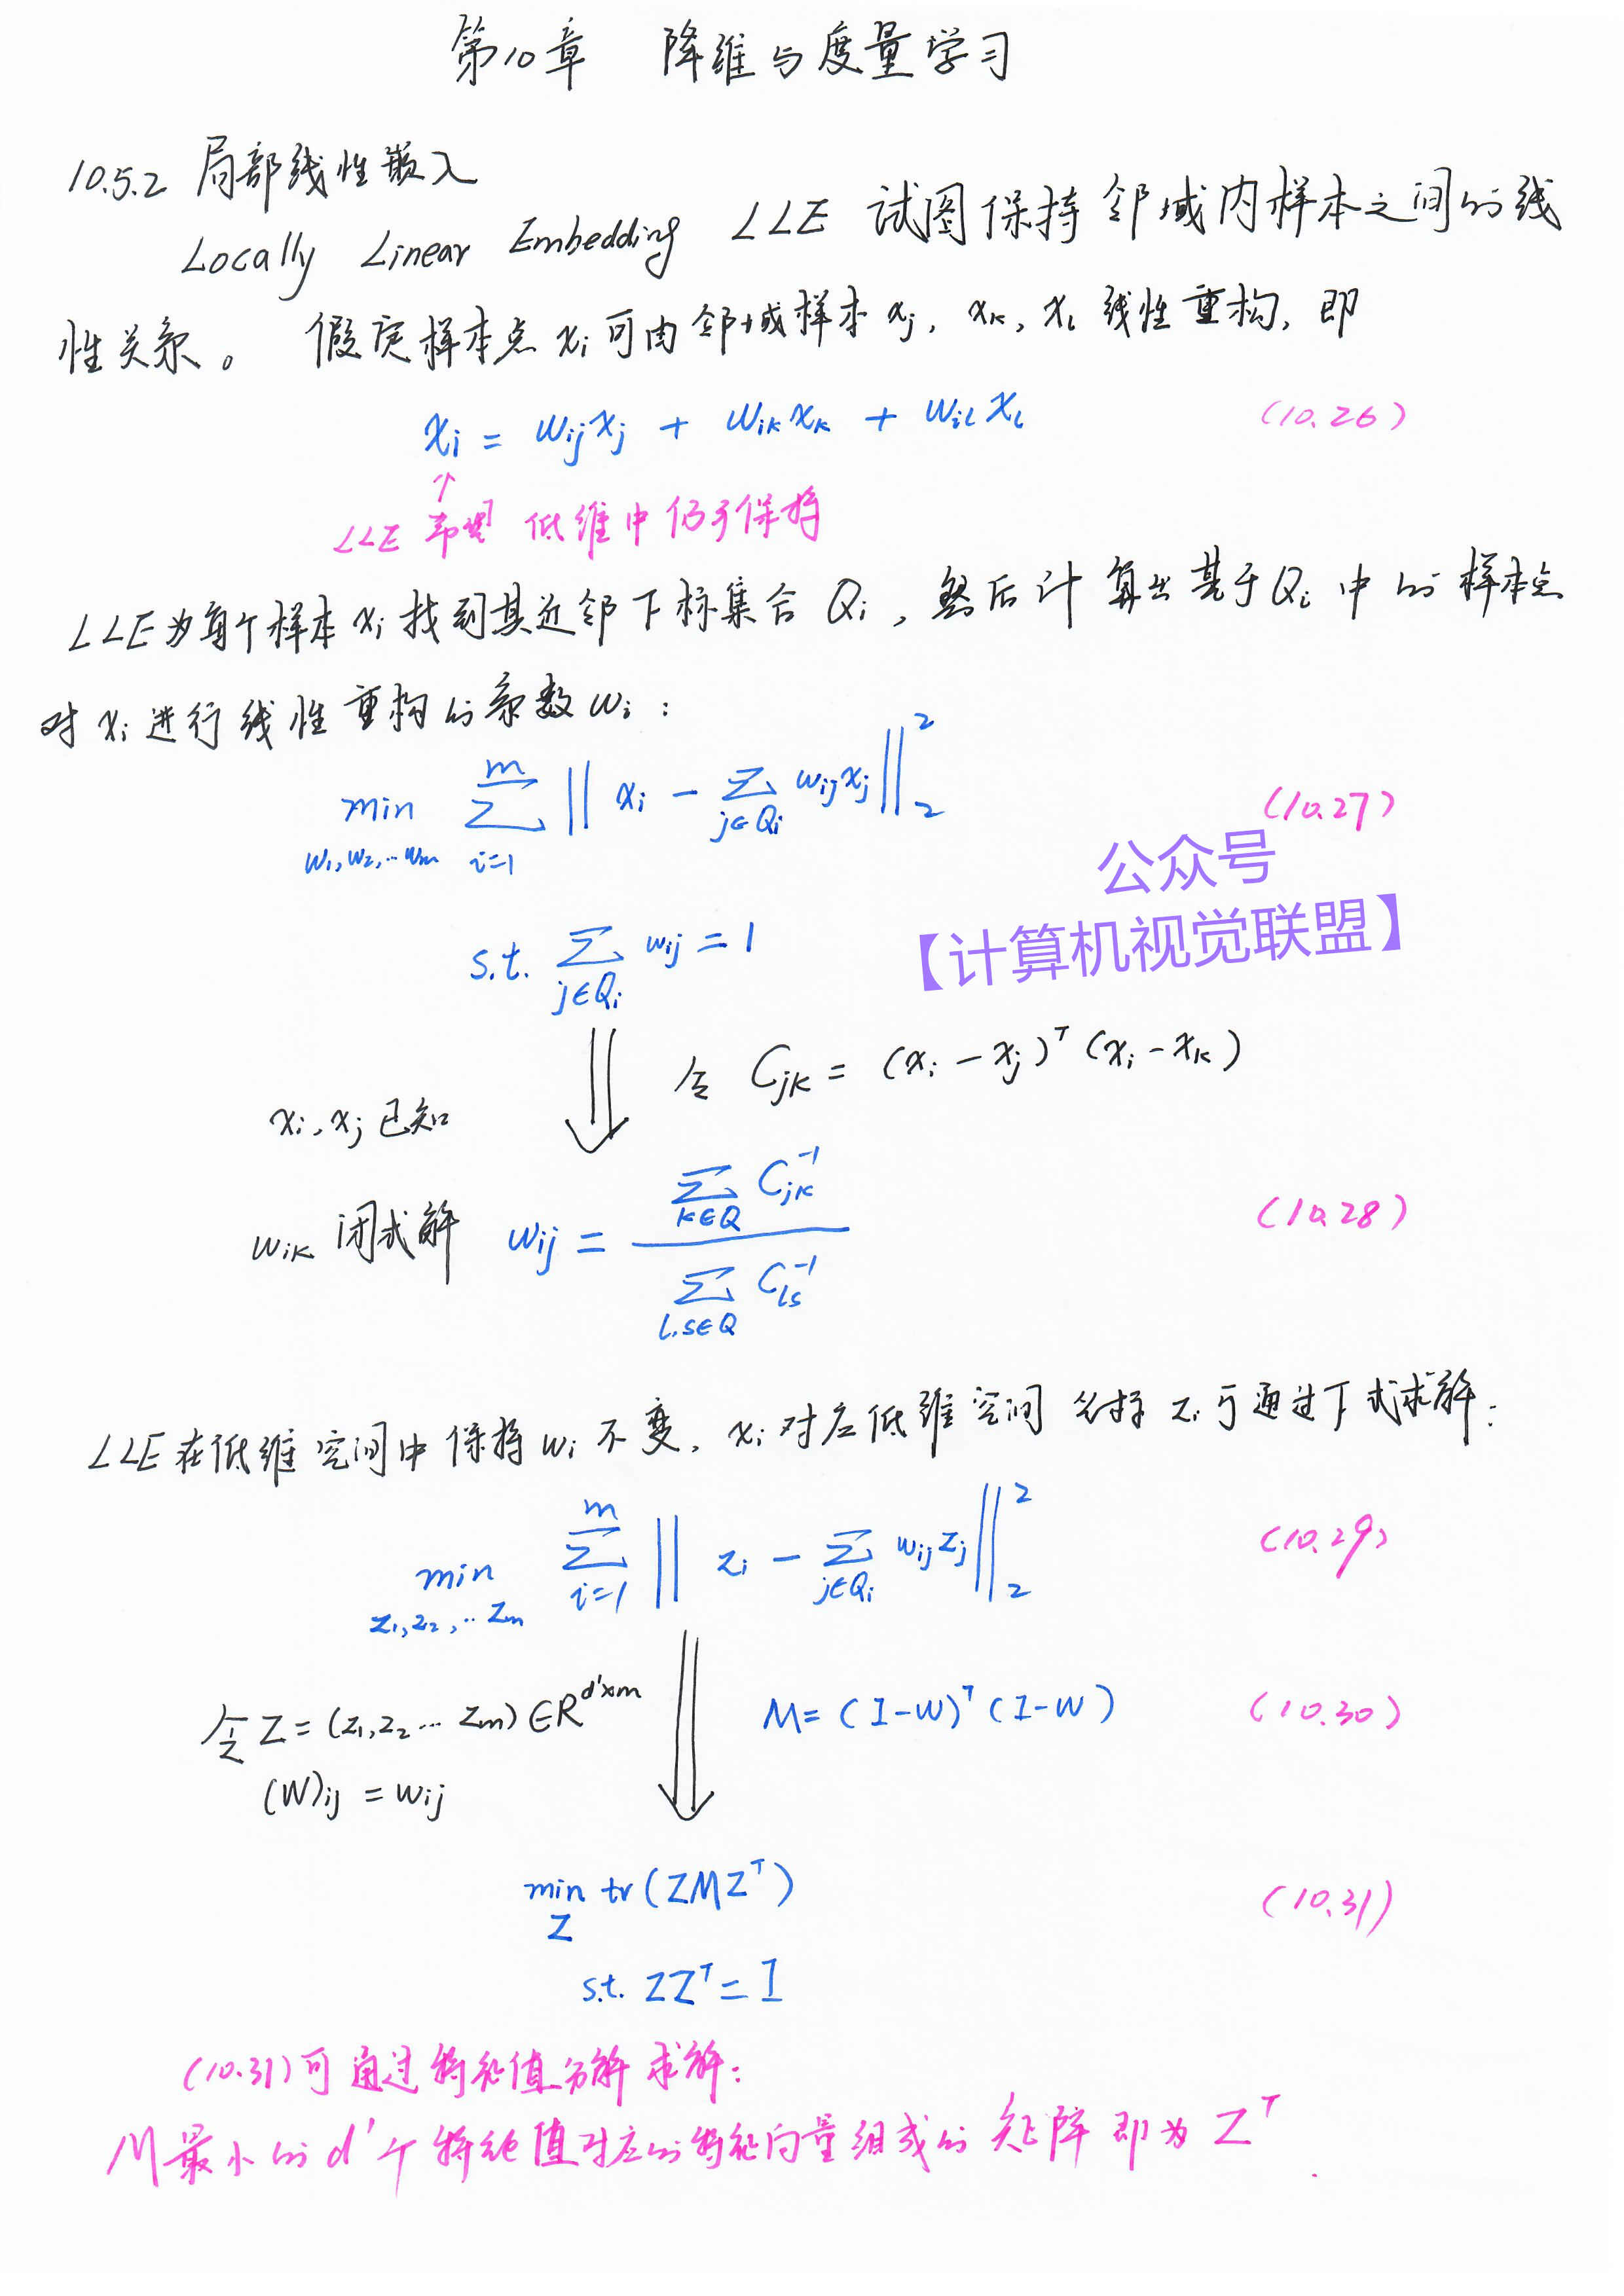 第10章 降维与度量学习
10.5.2 局部线性嵌入
Locally Linear Embedding LLE 试图保持邻域内样本之间的线
性关系。 假定样本点 xᵢ 可由邻域样本 xⱼ, xₖ, xₗ 线性重构, 即
xᵢ = wᵢⱼxⱼ + wᵢₖxₖ + wᵢₗxₗ (10.26)
↑
LLE 希望 低维中仍予保持
LLE为每个样本 xᵢ 找到其近邻下标集合 Qᵢ, 然后计算出基于Qᵢ中的样本点
对 xᵢ 进行线性重构的系数 wᵢ:
min_{w₁,w₂,…wₘ} ∑_{i=1}^{m} ‖xᵢ - ∑_{j∈Qᵢ} wᵢⱼxⱼ‖₂² (10.27)
公众号
【计算机视觉联盟】
s.t. ∑_{j∈Qᵢ} wᵢⱼ = 1
令 Cⱼₖ = (xᵢ - xⱼ)ᵀ(xᵢ - xₖ)
xᵢ, xⱼ 已知
wᵢₖ 闭式解 wᵢⱼ = \frac{∑_{k∈Q} C_{jk}^{-1}}{∑_{l,s∈Q} C_{ls}^{-1}} (10.28)
LLE在低维空间中保持 wᵢ 不变, xᵢ 对应低维空间坐标 zᵢ 可通过下式求解:
min_{z₁,z₂,…zₘ} ∑_{i=1}^{m} ‖zᵢ - ∑_{j∈Qᵢ} wᵢⱼzⱼ‖₂² (10.29)
令 Z = (z₁,z₂…zₘ) ∈ R^{d'×m} M = (I-W)ᵀ(I-W) (10.30)
(W)ᵢⱼ = wᵢⱼ
min_Z tr(ZMZᵀ) (10.31)
s.t. ZZᵀ = I
(10.31)可通过特征值分解求解:
M最小的d'个特征值对应的特征向量组成的矩阵即为Zᵀ.